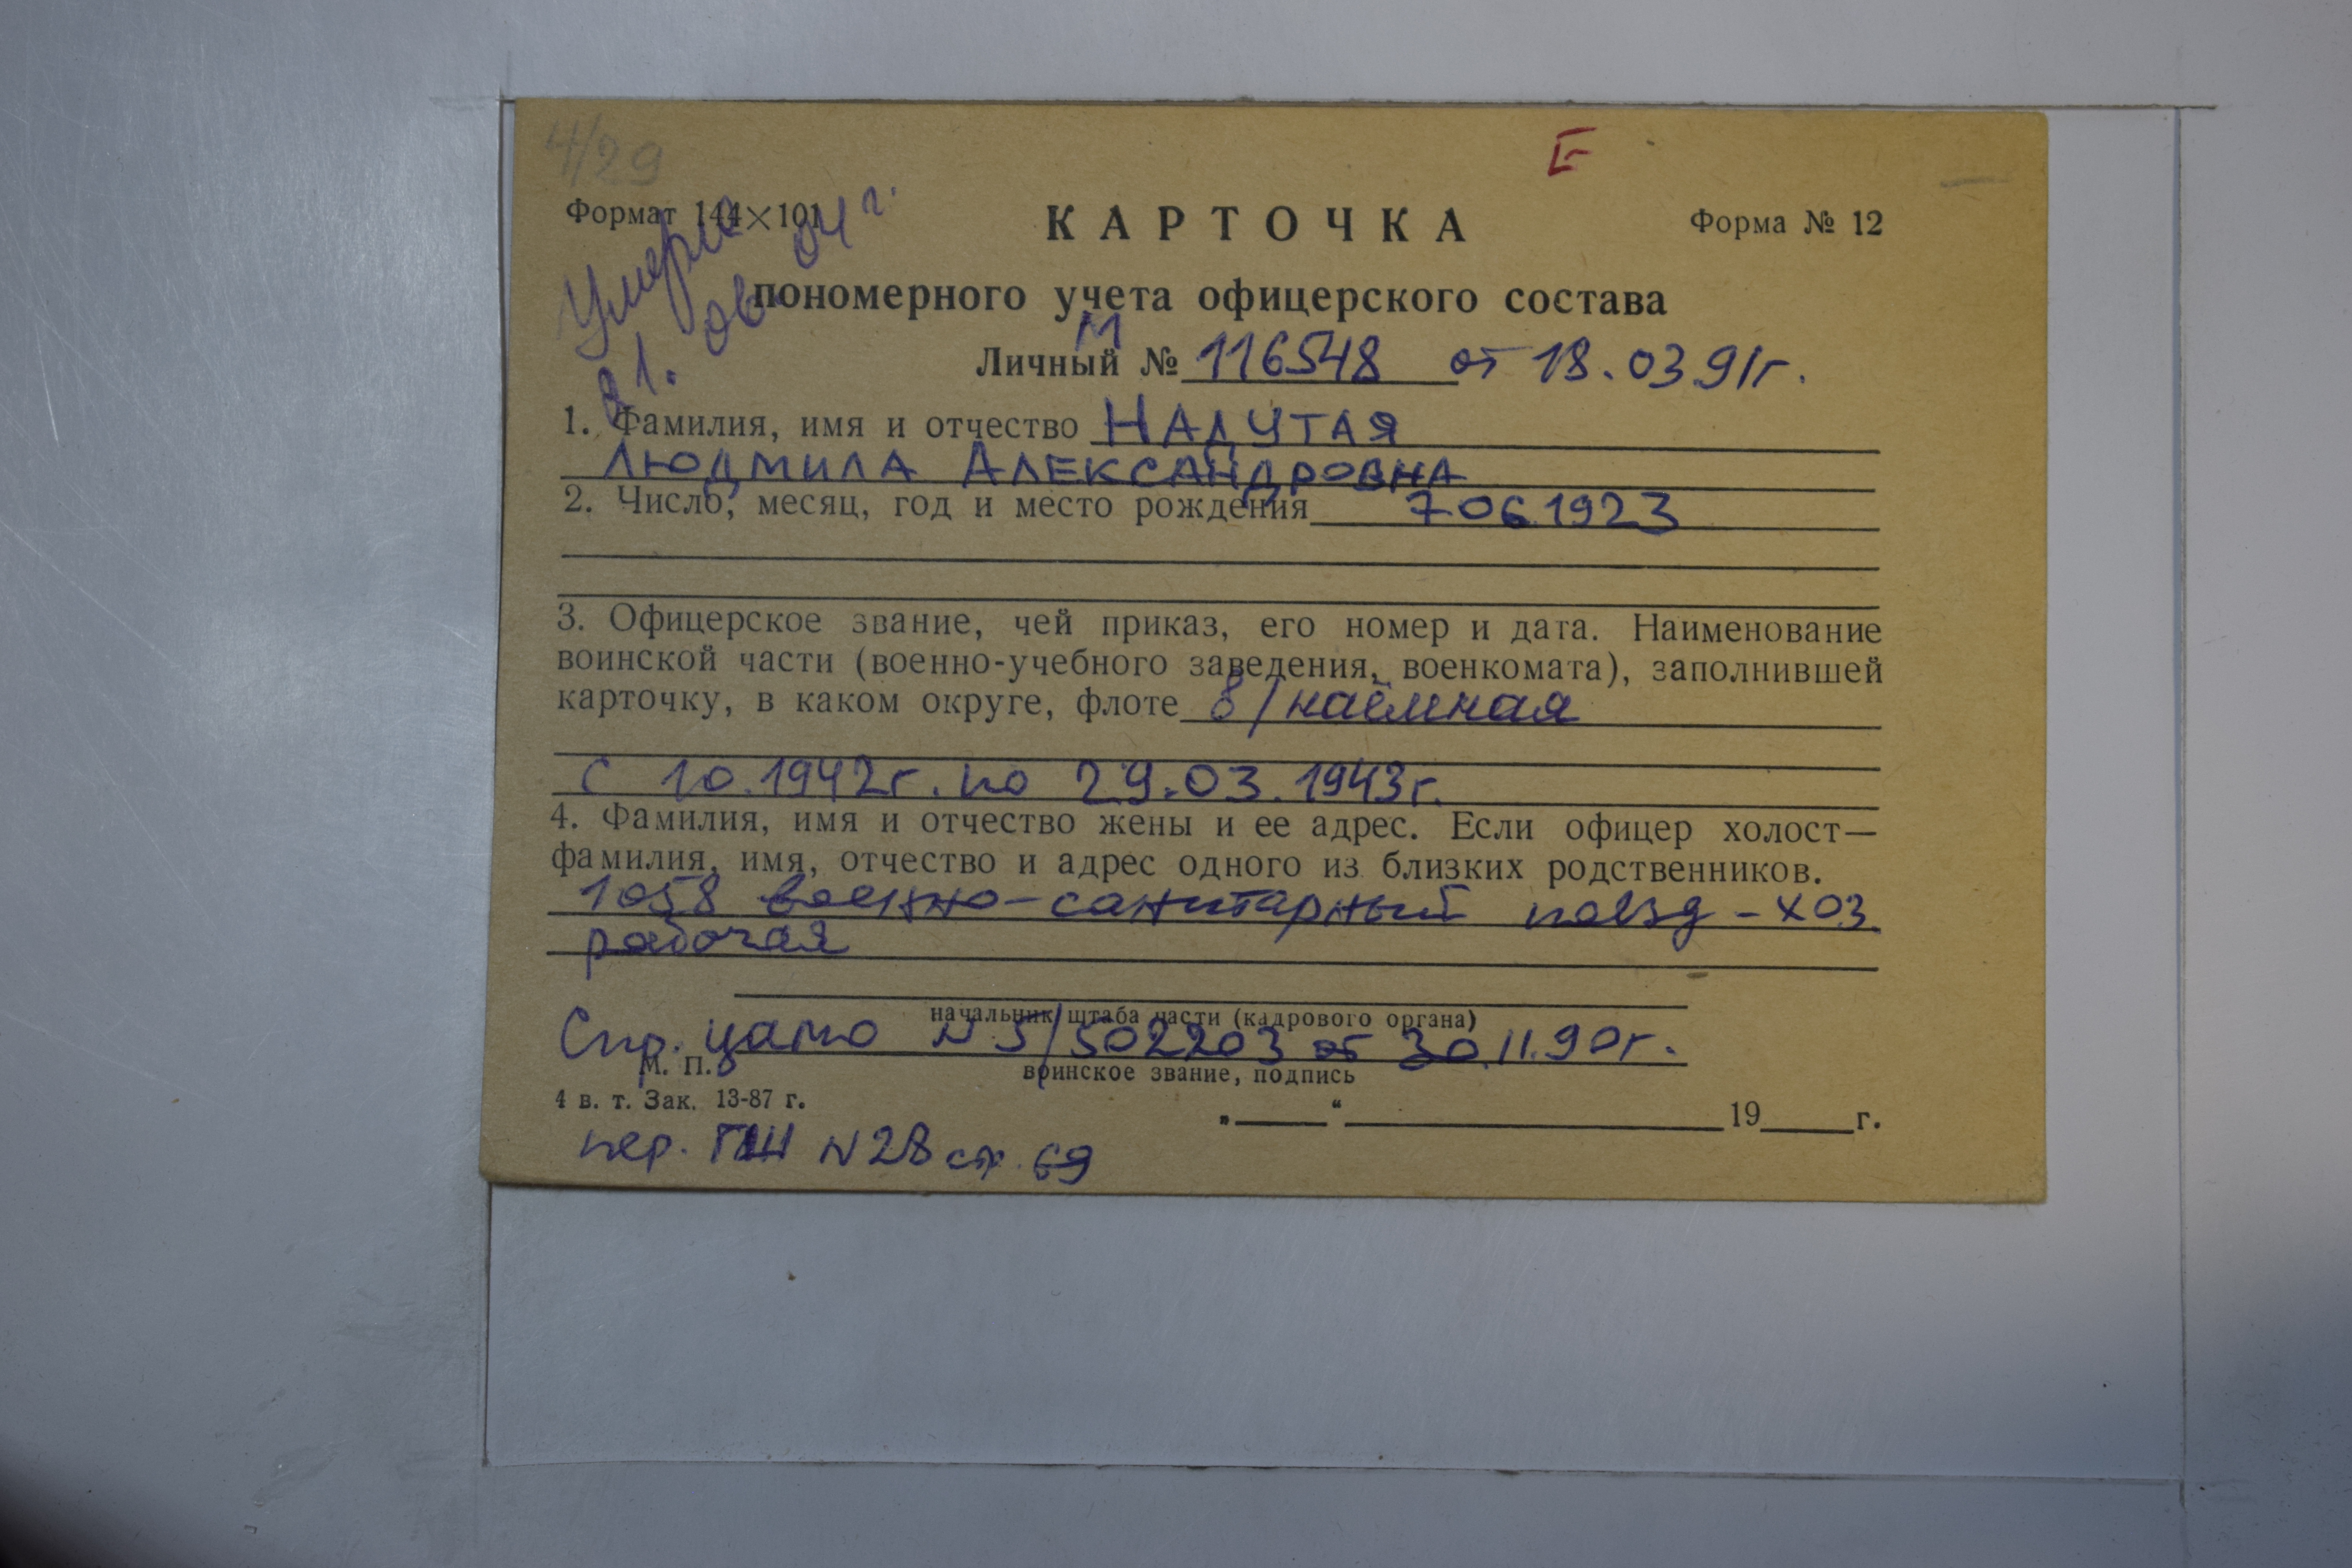 4/29
Формат 144×101
КАРТОЧКА
Форма № 12
Умерла
21. 04 г.
пономерного учета офицерского состава
М
Личный № 116548 от 18.03.91г.
1. Фамилия, имя и отчество НАДУТАЯ
ЛЮДМИЛА АЛЕКСАНДРОВНА
2. Число, месяц, год и место рождения 7.06.1923
3. Офицерское звание, чей приказ, его номер и дата. Наименование
воинской части (военно-учебного заведения, военкомата), заполнившей
карточку, в каком округе, флоте в/наёмная
с 10.1942г. по 29.03.1943г.
4. Фамилия, имя и отчество жены и ее адрес. Если офицер холост—
фамилия, имя, отчество и адрес одного из близких родственников.
1058 военно-санитарный поезд - хоз.
рабочая
начальник штаба части (кадрового органа)
Спр. цамо N 5/502203 от 30.11.90г.
М. П.
воинское звание, подпись
4 в. т. Зак. 13-87 г.
„ “ 19 г.
пер. N 28 ст. 69